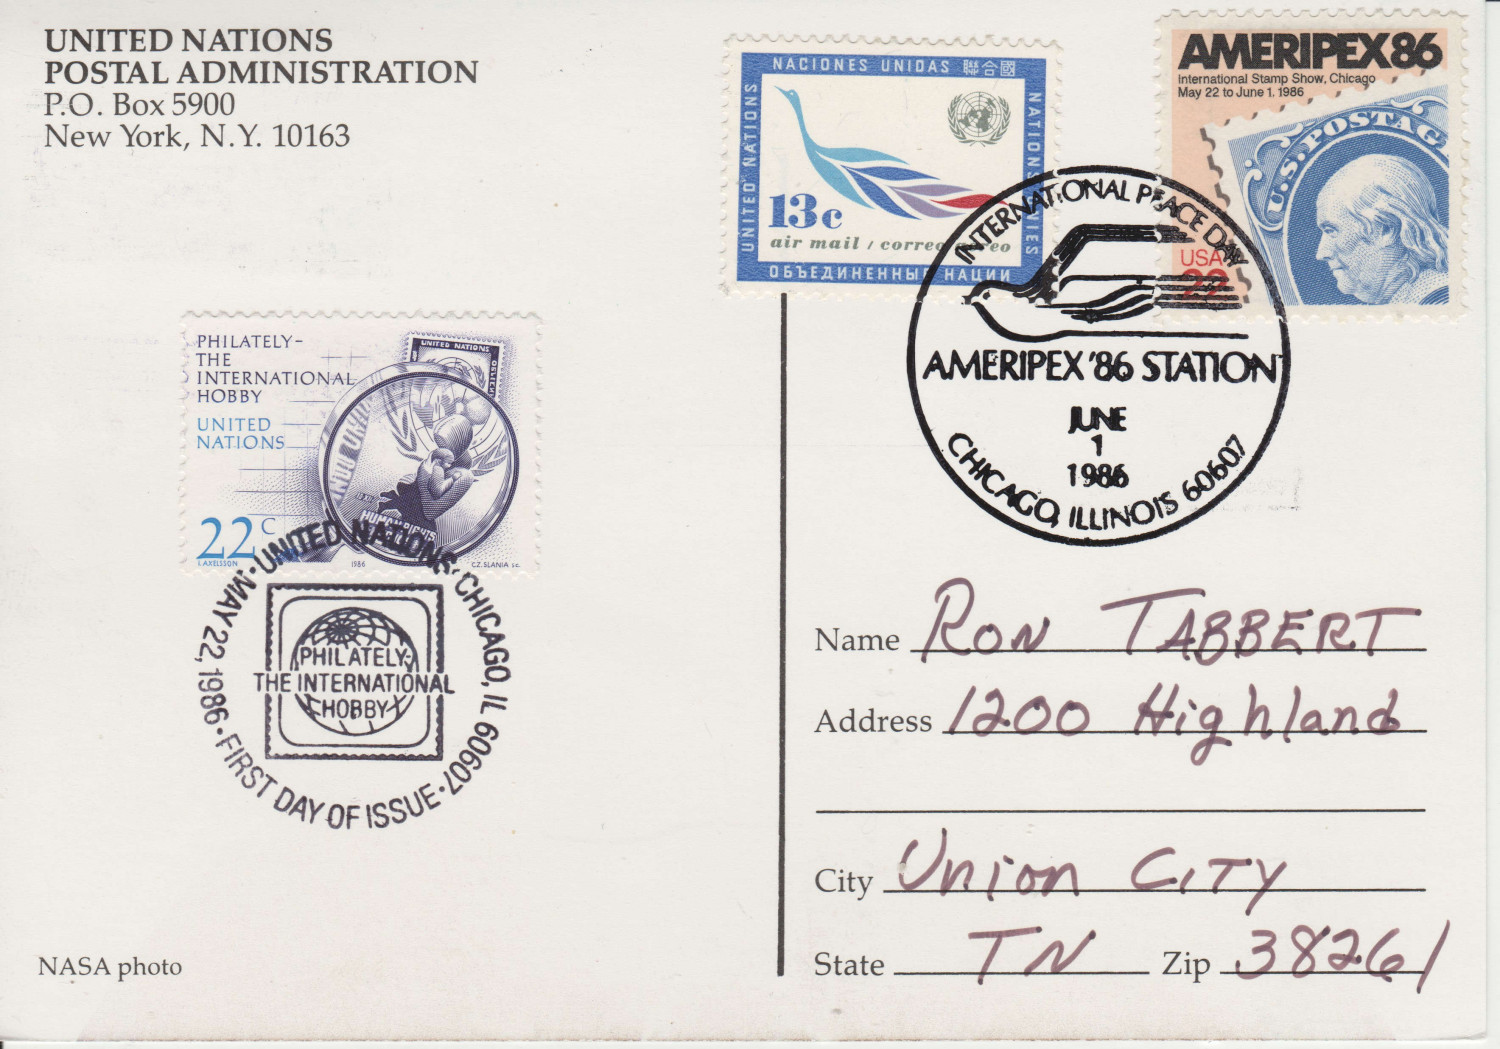 UNITED NATIONS
POSTAL ADMINISTRATION
P.O. Box 5900
New York, N.Y. 10163
NACIONES UNIDAS 聯合國
UNITED NATIONS
NATIONS UNIES
13c
air mail / correo aéreo
ОБЪЕДИНЕННЫЕ НАЦИИ
AMERIPEX 86
International Stamp Show, Chicago
May 22 to June 1, 1986
U.S. POSTAG
USA
22
INTERNATIONAL PEACE DAY
AMERIPEX '86 STATION
JUNE
1
1986
CHICAGO, ILLINOIS 60607
PHILATELY-
THE
INTERNATIONAL
HOBBY
UNITED
NATIONS
UNITED NATIONS
HUMAN RIGHTS
22c
I.AXELSSON
1986
CZ.SLANIA sc.
UNITED NATIONS, CHICAGO, IL 60607 · FIRST DAY OF ISSUE · MAY 22, 1986 ·
PHILATELY-
THE INTERNATIONAL
HOBBY
Name Ron Tabbert
Address 1200 Highland
City Union City
State TN Zip 38261
NASA photo